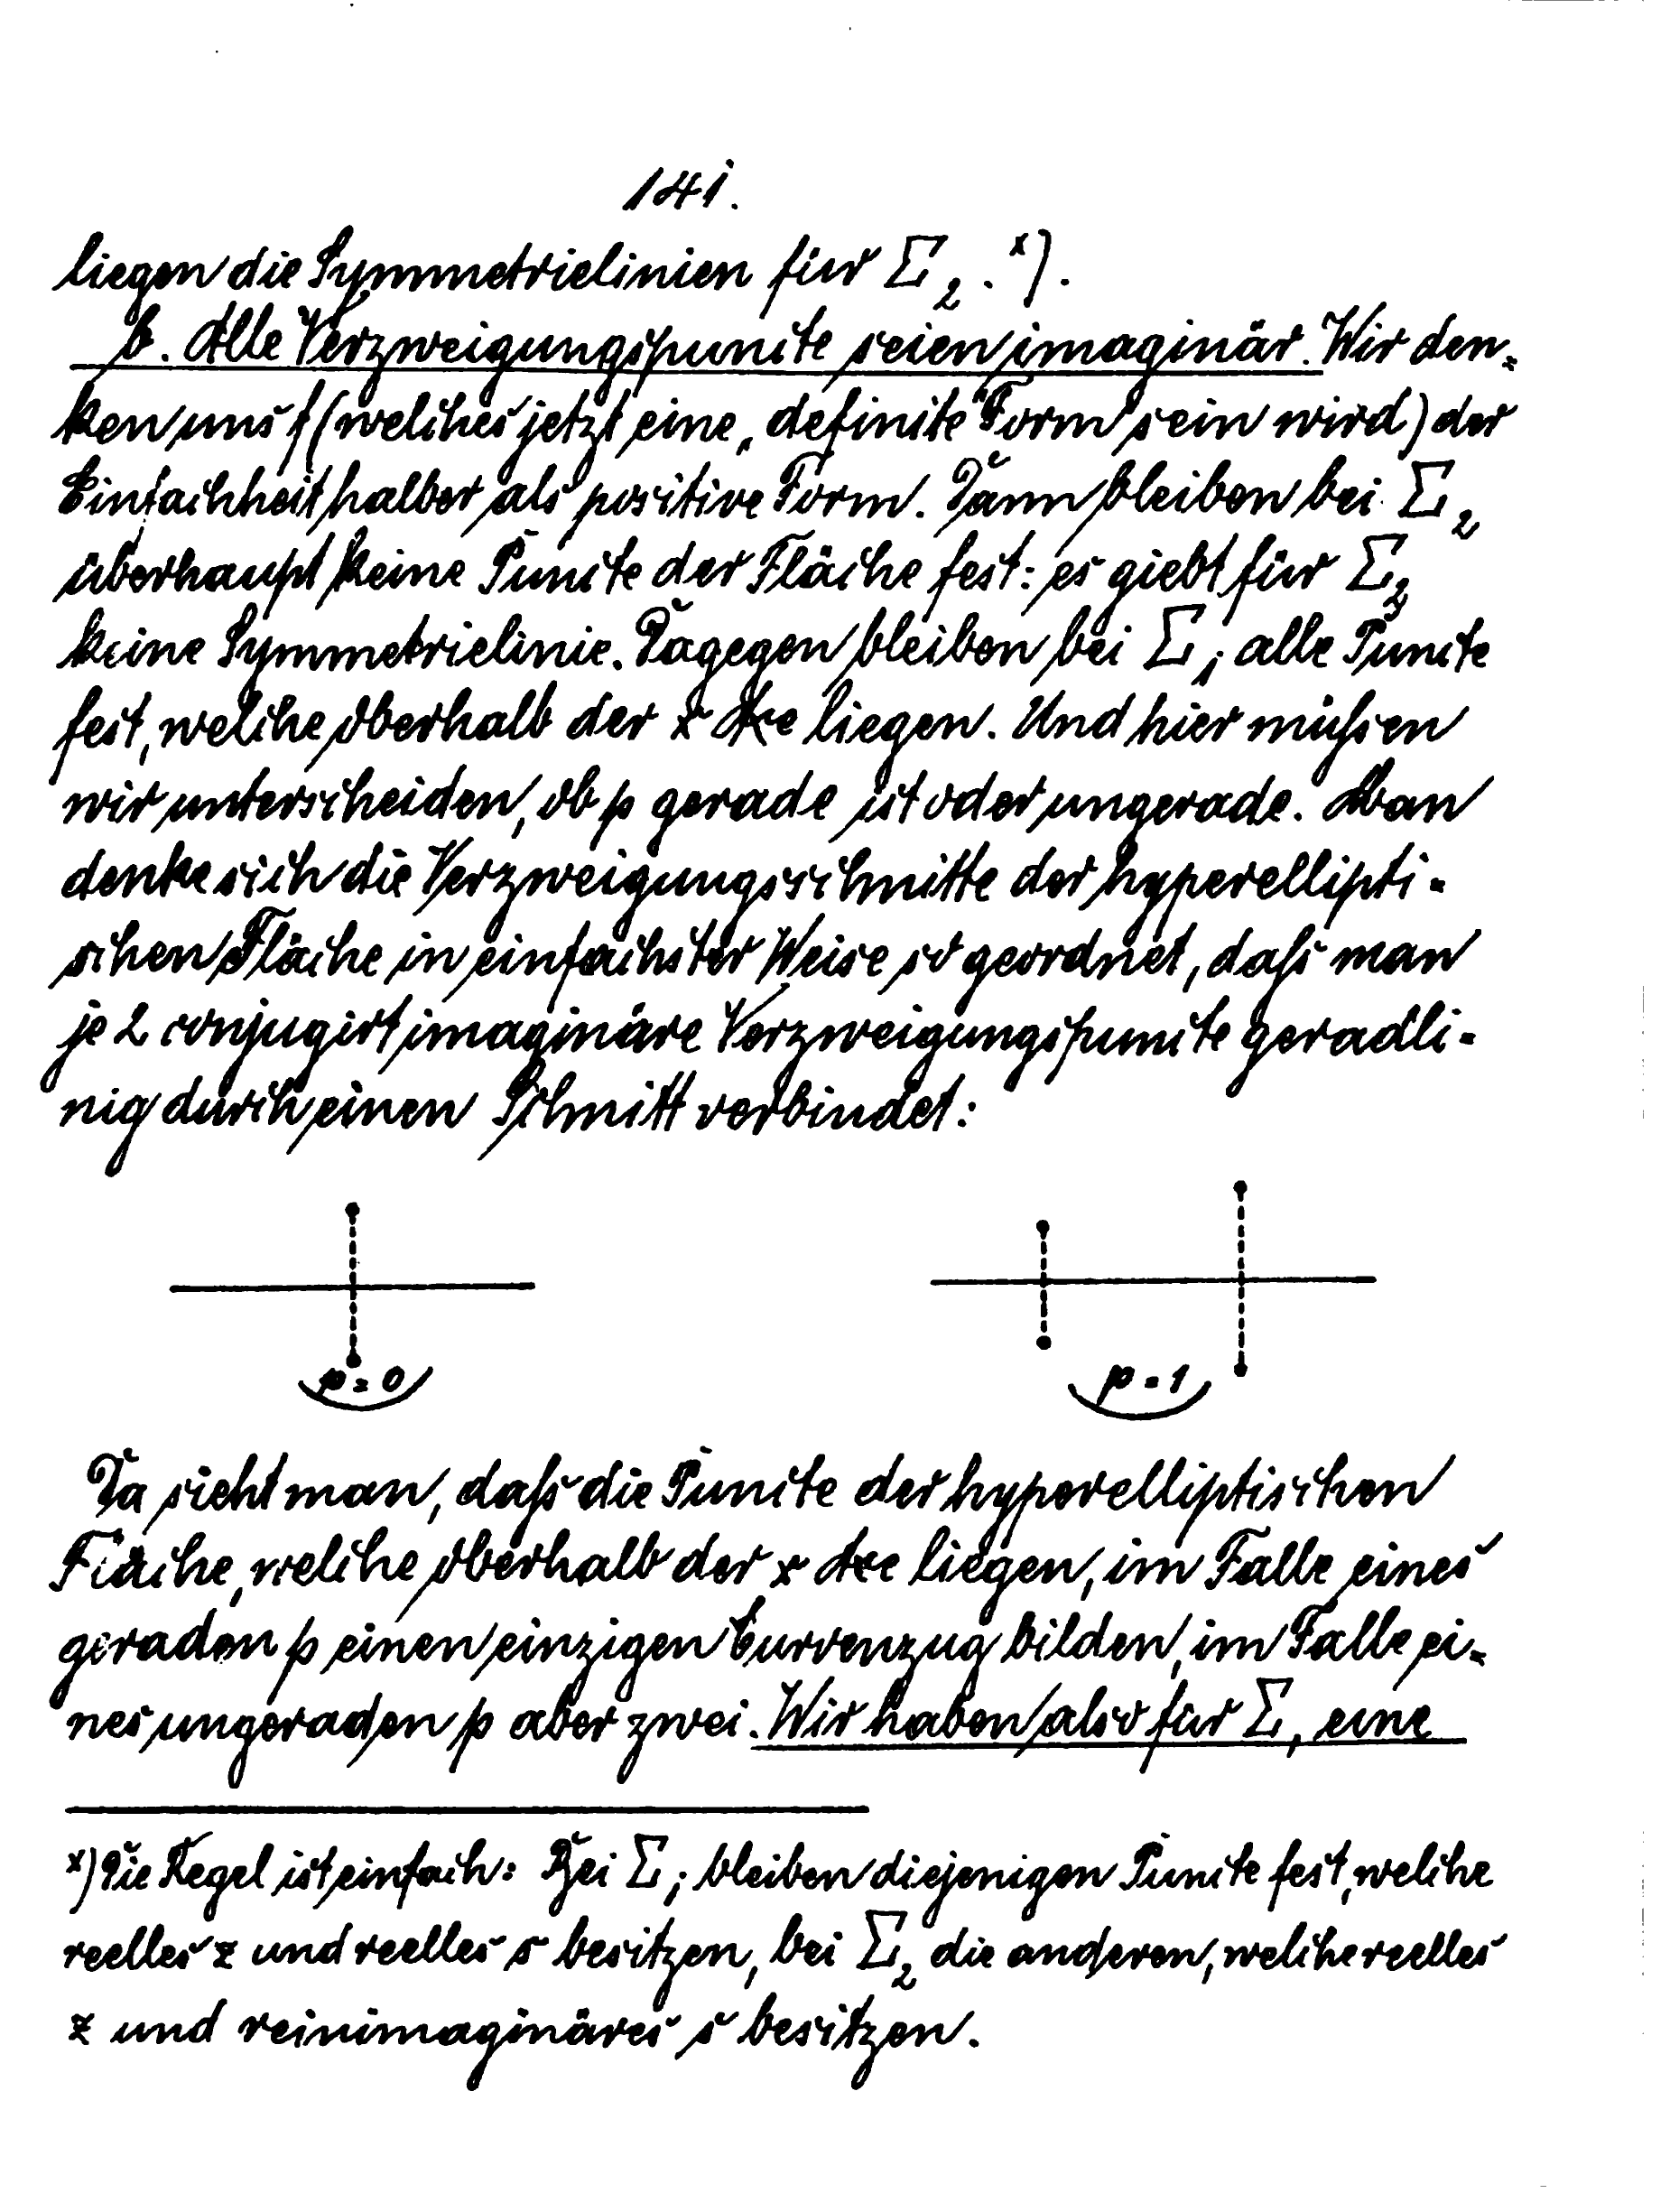 141.
liegen die Symmetrielinien für Σ₂. ˣ).
b. Alle Verzweigungspuncte seien imaginär. Wir den-
ken uns f (welches jetzt eine „definite“ Form sein wird) der
Einfachheit halber als positive Form. Dann bleiben bei Σ₂
überhaupt keine Puncte der Fläche fest: es giebt für Σ₂
keine Symmetrielinie. Dagegen bleiben bei Σ₁ alle Puncte
fest, welche oberhalb der x Axe liegen. Und hier müssen
wir unterscheiden, ob p gerade ist oder ungerade. Man
denke sich die Verzweigungsschnitte der hyperellipti-
schen Fläche in einfachster Weise so geordnet, daß man
je 2 conjugirt imaginäre Verzweigungspuncte geradli-
nig durch einen Schnitt verbindet:
p = 0
p = 1
Da sieht man, daß die Puncte der hyperelliptischen
Fläche, welche oberhalb der x Axe liegen, im Falle eines
geraden p einen einzigen Curvenzug bilden, im Falle ei-
nes ungeraden p aber zwei. Wir haben also für Σ₁ eine
ˣ) Die Regel ist einfach: Bei Σ₁ bleiben diejenigen Puncte fest, welche
reelles z und reelles s besitzen, bei Σ₂ die anderen, welche reelles
z und reinimaginäres s besitzen.